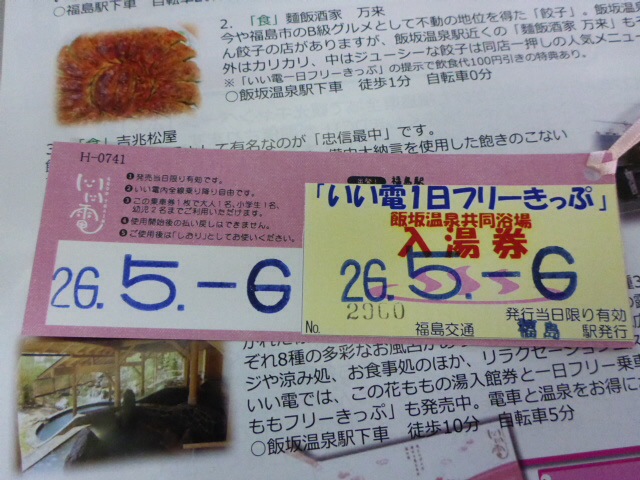 福島駅下車
2.「食」麺飯酒家 万来
今や福島市のB級グルメとして不動の地位を得た「餃子」。飯坂温
ん餃子の店がありますが、飯坂温泉駅近くの「麺飯酒家 万来」も
外はカリカリ、中はジューシーな餃子は同店一押しの人気メニュー
※「いい電一日フリーきっぷ」の提示で飲食代100円引きの特典あり。
○飯坂温泉駅下車 徒歩1分 自転車0分
「食」吉兆松屋
して有名なのが「忠信最中」です。
大納言を使用した飽きのこない
H-0741
いい電
❶発売当日限り有効です。
❷いい電内全線乗り降り自由です。
❸この乗車券1枚で大人1名、小学生1名、
幼児2名までご利用いただけます。
❹使用開始後の払い戻しはできません。
❺ご使用後は「しおり」としてお使いください。
26.5.-6
福島駅
「いい電1日フリーきっぷ」
飯坂温泉共同浴場
入湯券
26.5.-6
2960
発行当日限り有効
No.
福島交通
福島 駅発行
ぞれ8種の多彩なお風呂が
ジや涼み処、お食事処のほか、リラクゼーション
いい電では、この花ももの湯入館券と一日フリー乗車
ももフリーきっぷ」も発売中。電車と温泉をお得に
○飯坂温泉駅下車 徒歩10分 自転車5分